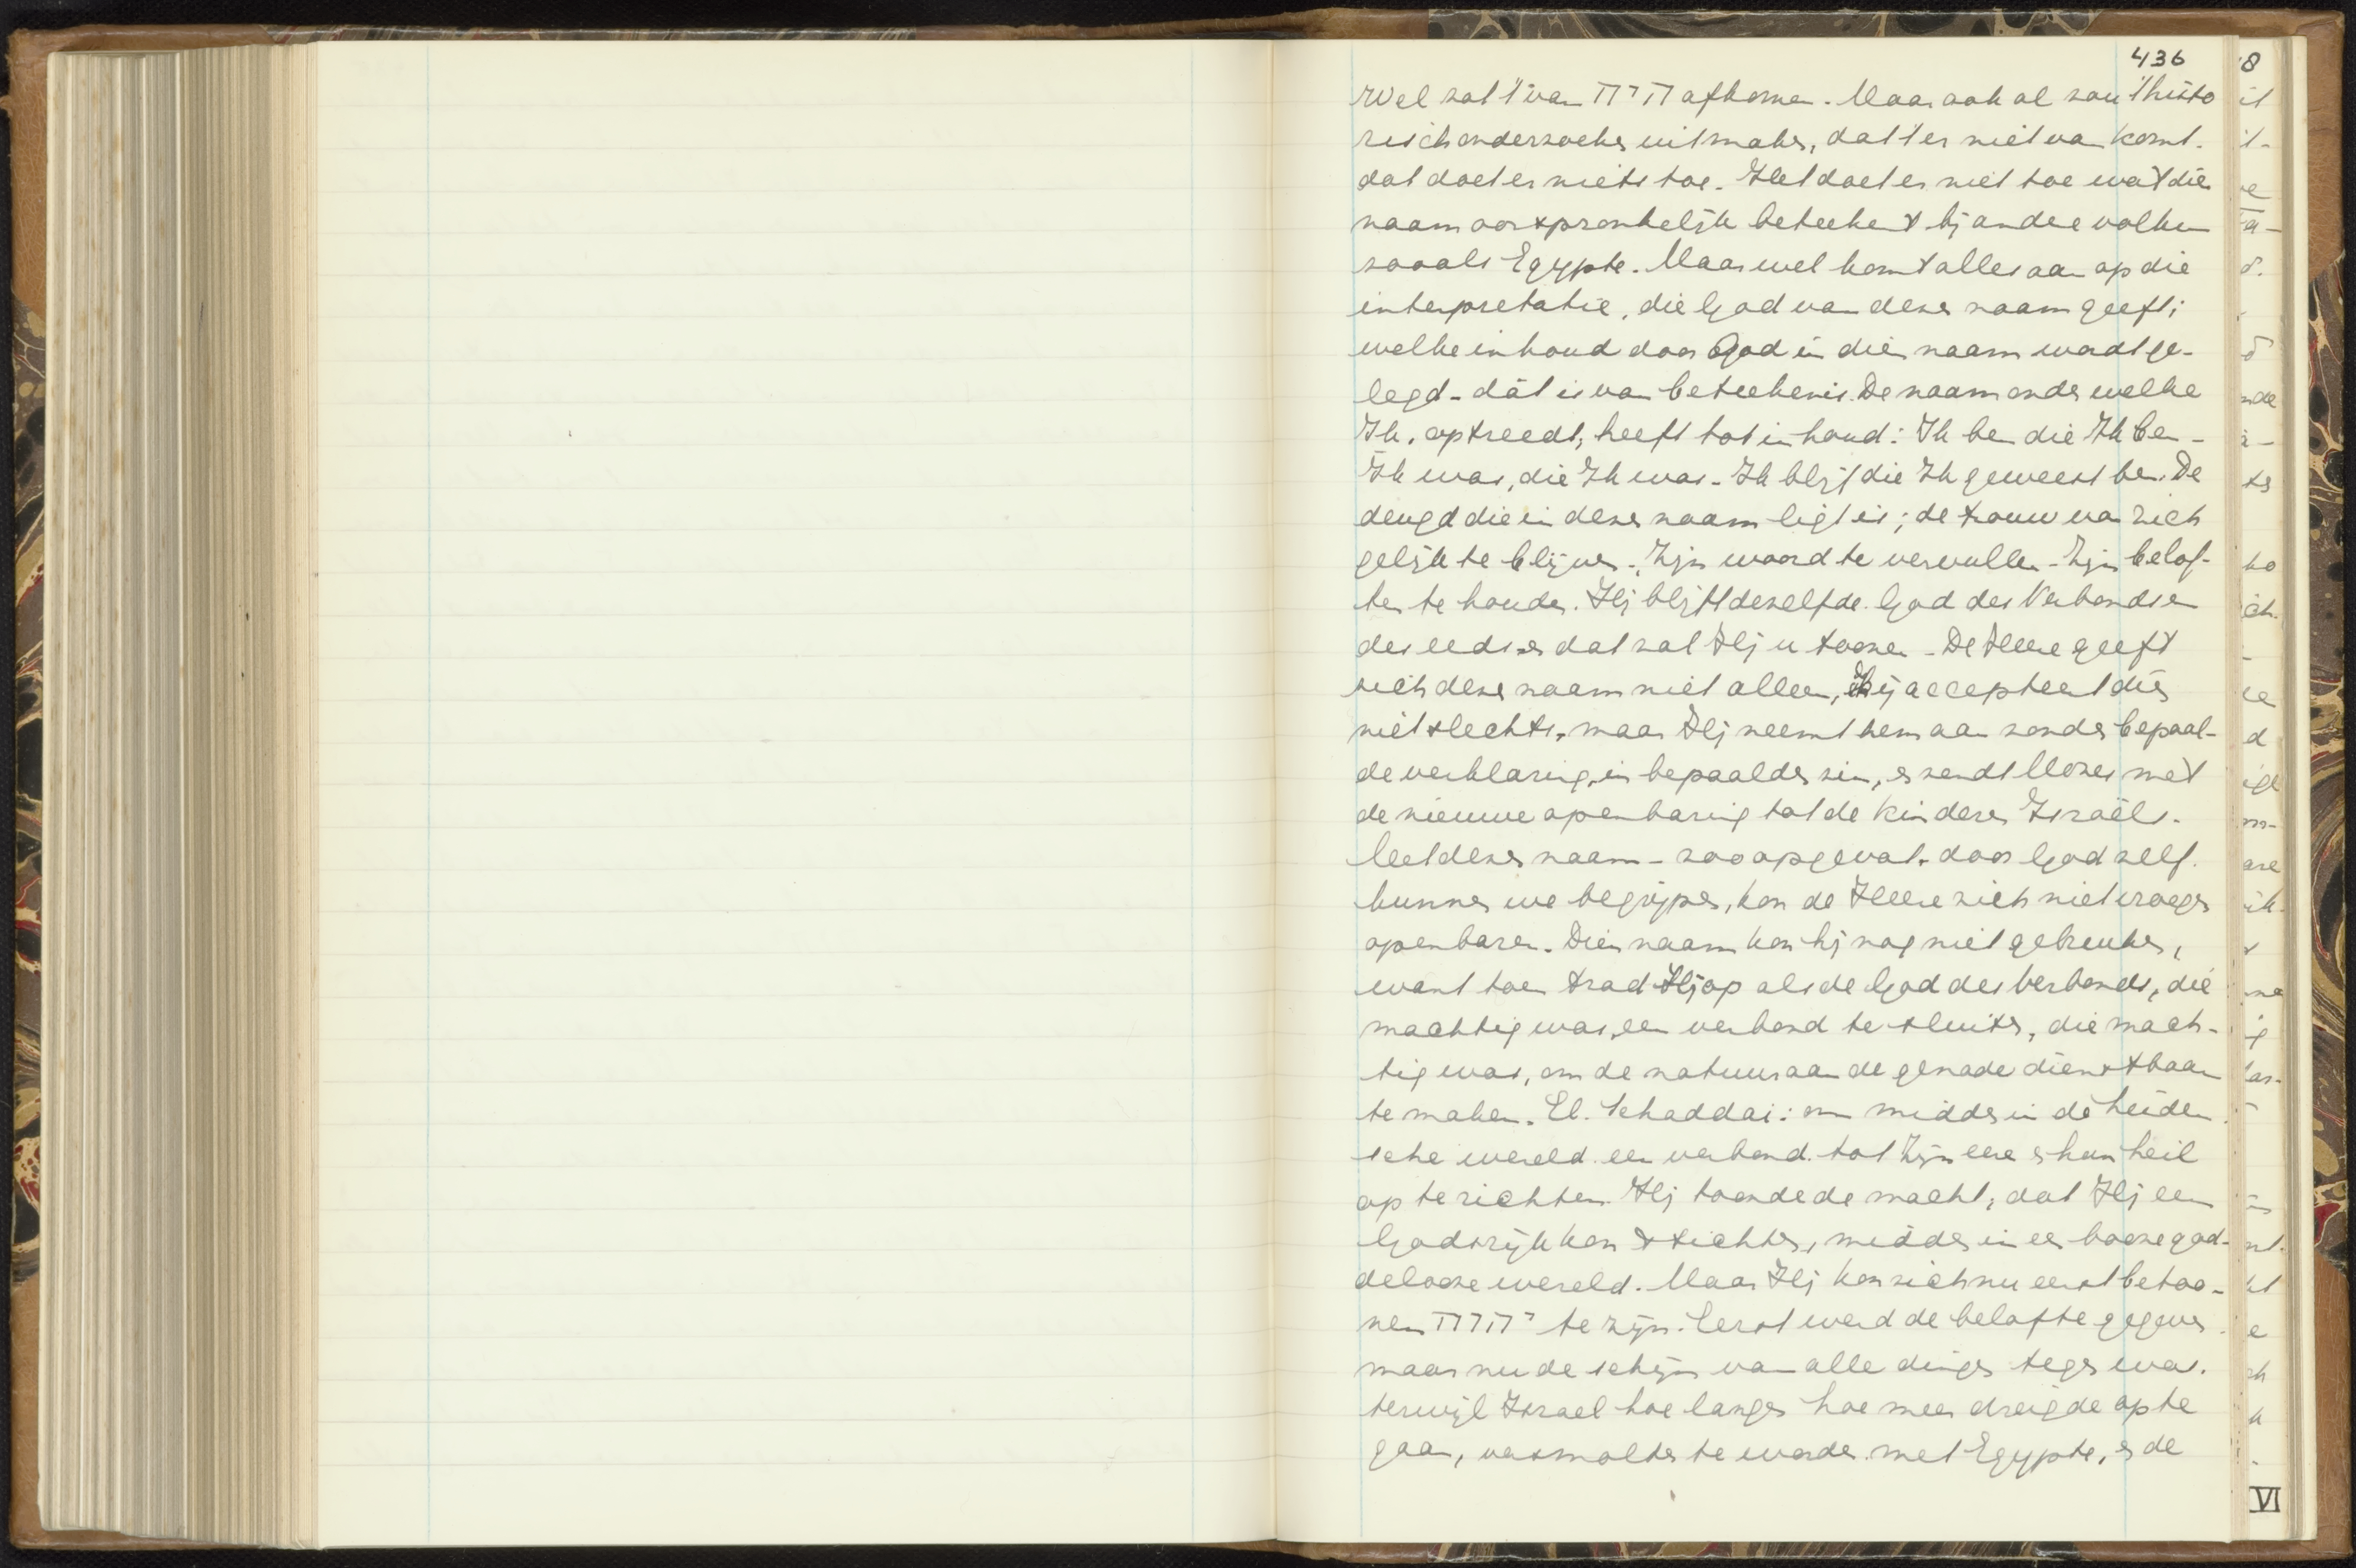 436
Wel zal 't van היה afkomen. Maar ook al zou 't histo
risch onderzoeken uitmaken, dat 't er niet van komt.
dat doet er niets toe. Het doet er niet toe wat dien
naam oorspronkelijk beteekent bij andere volken
zooals Egypte. Maar wel komt alles aan op die
interpretatie, die God van dezen naam geeft;
welke inhoud door God in dien naam wordt ge-
legd - dát is van beteekenis. De naam onder welke
Ik, optreedt, heeft tot inhoud: Ik ben die Ik ben -
Ik was, die Ik was - Ik blijf die Ik geweest ben. De
deugd die in dezen naam ligt is; de trouw van zich
gelijk te blijven - Zijn woord te vervullen - Zijn belof-
ten te houden. Hij blijft dezelfde God des Verbonds en
des eeds en dat zal Hij u toonen - De Heere geeft
zich dezen naam niet alleen, Hij accepteert dien
niet slechts, maar Hij neemt hem aan onder bepaal-
de verklaring, in bepaalden zin, en zendt Mozes met
de nieuwe openbaring tot de kinderen Israëls.
Met dezen naam - zoo opgevat door God zelf.
kunnen we begrijpen, kon de Heere zich niet vroeger
openbaren. Dien naam kon hij nog niet gebruiken,
want toen trad Hij op als de God des verbonds, die
machtig was, een verbond te sluiten, die mach-
tig was, om de natuur aan de genade dienstbaar
te maken. El. Schaddai: om midden in de heiden
sche wereld een verbond tot Zijn eere en hun heil
op te richten. Hij toonde de macht, dat Hij een
Godsrijk kon stichten, midden in een booze god-
delooze wereld. Maar Hij kon zich nu eerst betoo-
nen יהוה te zijn. Eerst werd de belofte gegeven
maar nu de schijn van alle dingen tegen was.
terwijl Israel hoe langer hoe meer dreigde op te
gaan, versmolten te worden met Egypte, en de
VI